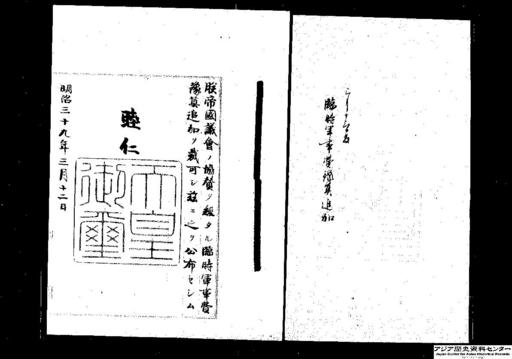 臨時軍事費豫算追加
朕帝國議會ノ協賛ヲ經タル臨時軍事費
豫算追加ヲ裁可シ茲ニ之ヲ公布セシム
睦仁
天皇
御璽
明治三十九年三月十二日
アジア歴史資料センター
Japan Center for Asian Historical Records